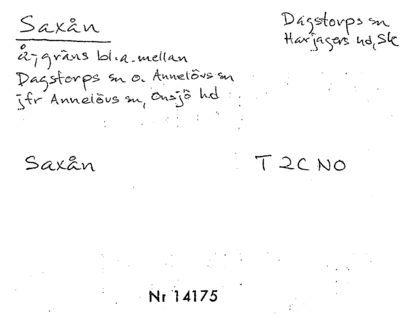 Saxån
Dagstorps sn
Harjagers hd, Sk
å; gräns bl.a. mellan
Dagstorps sn o. Annelövs sn
jfr Annelövs sn, Onsjö hd
Saxån
T 2C NO
Nr 14175